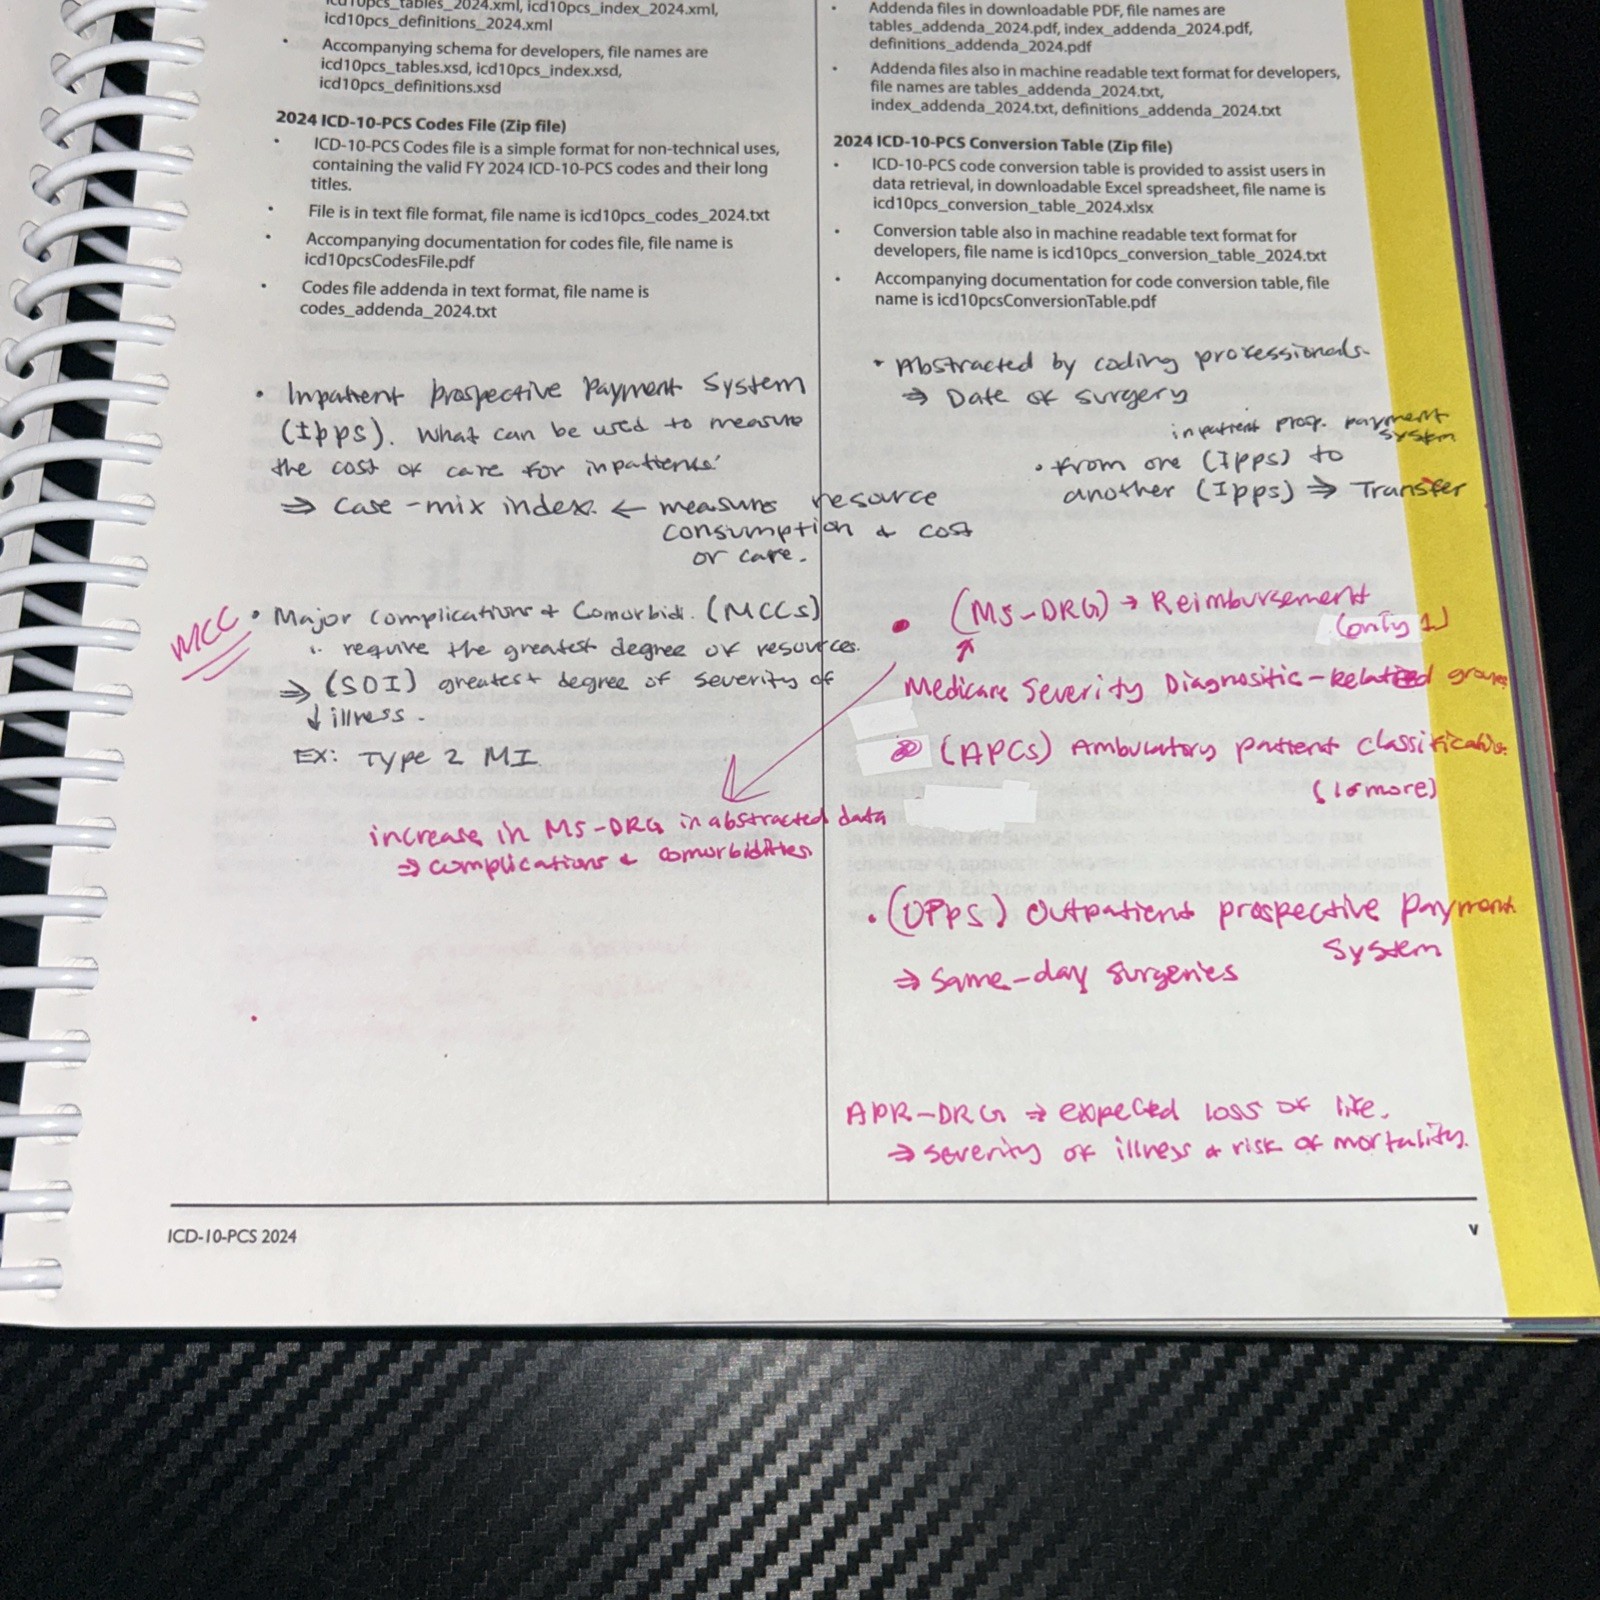 icd10pcs_tables_2024.xml, icd10pcs_index_2024.xml,
icd10pcs_definitions_2024.xml
• Accompanying schema for developers, file names are
icd10pcs_tables.xsd, icd10pcs_index.xsd,
icd10pcs_definitions.xsd
2024 ICD-10-PCS Codes File (Zip file)
• ICD-10-PCS Codes file is a simple format for non-technical uses,
containing the valid FY 2024 ICD-10-PCS codes and their long
titles.
• File is in text file format, file name is icd10pcs_codes_2024.txt
• Accompanying documentation for codes file, file name is
icd10pcsCodesFile.pdf
• Codes file addenda in text format, file name is
codes_addenda_2024.txt
• Inpatient prospective Payment System
(Ipps). What can be used to measure
the cost of care for inpatients:
⇒ Case-mix index. ← measures resource
consumption & cost
or care.
MCC
• Major complications & Comorbid. (MCCs)
∴ require the greatest degree of resources.
⇒ (SOI) greatest degree of severity of
↓ illness.
EX: Type 2 MI
increase in MS-DRG in abstracted data
⇒ complications & comorbidities
• Addenda files in downloadable PDF, file names are
tables_addenda_2024.pdf, index_addenda_2024.pdf,
definitions_addenda_2024.pdf
• Addenda files also in machine readable text format for developers,
file names are tables_addenda_2024.txt,
index_addenda_2024.txt, definitions_addenda_2024.txt
2024 ICD-10-PCS Conversion Table (Zip file)
• ICD-10-PCS code conversion table is provided to assist users in
data retrieval, in downloadable Excel spreadsheet, file name is
icd10pcs_conversion_table_2024.xlsx
• Conversion table also in machine readable text format for
developers, file name is icd10pcs_conversion_table_2024.txt
• Accompanying documentation for code conversion table, file
name is icd10pcsConversionTable.pdf
• Abstracted by coding professionals.
⇒ Date of surgery
inpatient prosp. payment
system
• from one (Ipps) to
another (Ipps) ⇒ Transfer
• (MS-DRG) → Reimbursement
(only 1)
↑
Medicare Severity Diagnositic-Related groups
• (APCs) Ambulatory patient classification.
(1 or more)
• (OPpS) Outpatient prospective payment
System
⇒ Same-day surgeries
APR-DRG ⇒ expected loss of life.
⇒ severity of illness & risk of mortality.
ICD-10-PCS 2024
v